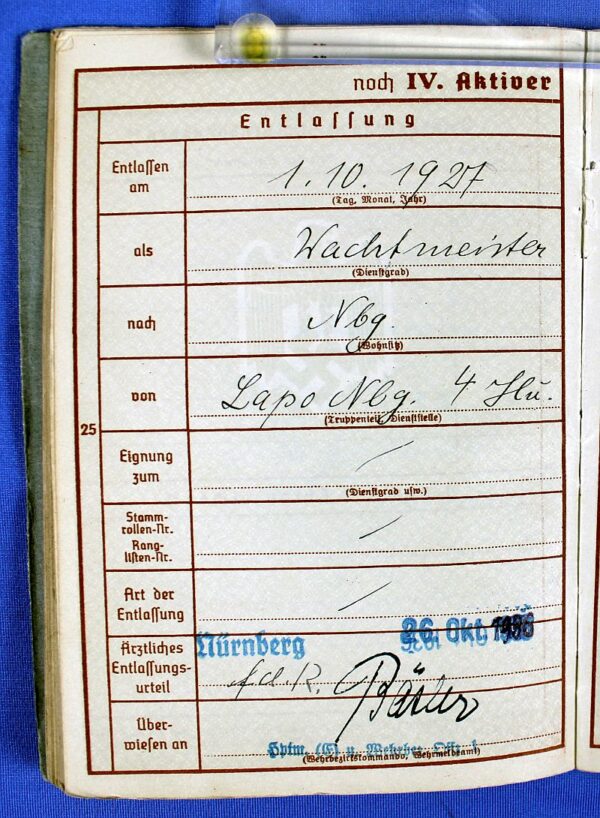 noch IV. Aktiver
Entlassung
Entlassen am
1. 10. 1927
(Tag, Monat, Jahr)
als
Wachtmeister
(Dienstgrad)
nach
Nbg.
(Wohnsitz)
von
Lapo Nbg. 4 Hu.
(Truppenteil, Dienststelle)
25
Eignung zum
(Dienstgrad usw.)
Stamm-
rollen-Nr.
Rang-
listen-Nr.
Art der
Entlassung
Ärztliches
Entlassungs-
urteil
Nürnberg
26. Okt. 1936
f.d.R.
Über-
wiesen an
Hptm. (E) u. Wehrbez. Offz.
(Wehrbezirkskommando, Wehrmeldeamt)